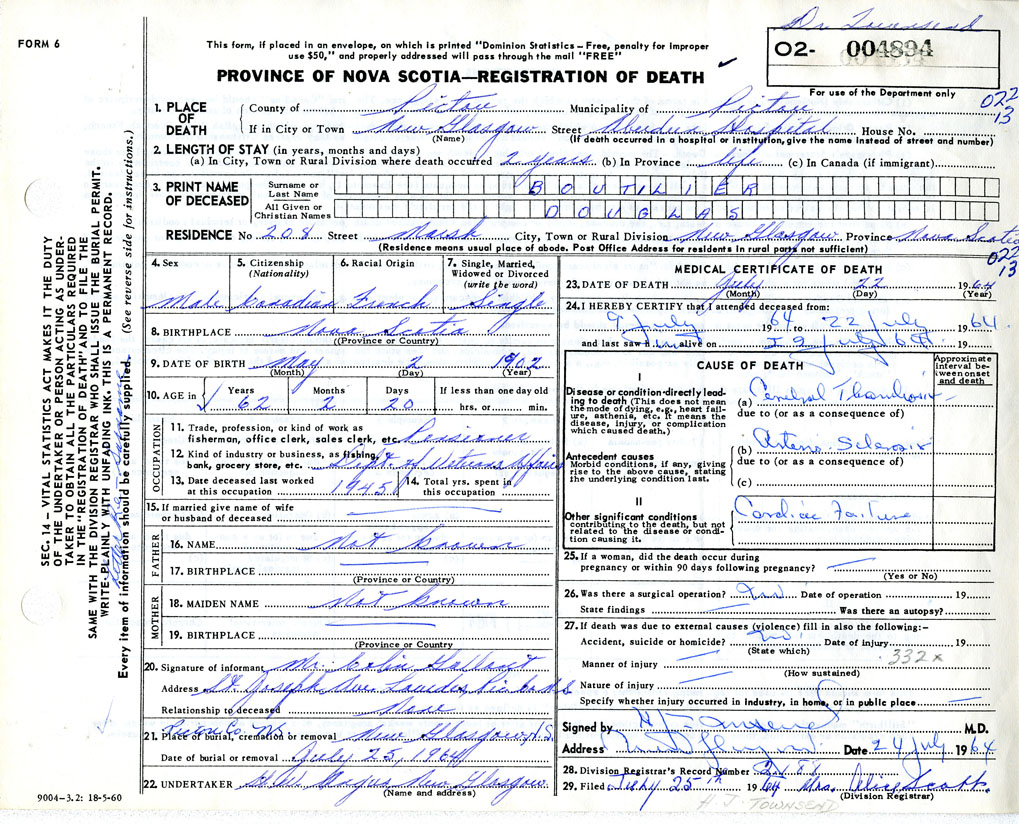 Dr Townsend
FORM 6
This form, if placed in an envelope, on which is printed "Dominion Statistics – Free, penalty for improper
use $50," and properly addressed will pass through the mail "FREE"
02- 004894
PROVINCE OF NOVA SCOTIA—REGISTRATION OF DEATH ✓
For use of the Department only
022
13
1. PLACE OF DEATH
County of Pictou Municipality of Pictou
If in City or Town New Glasgow Street Aberdeen Hospital House No.
(Name) (If death occurred in a hospital or institution, give the name instead of street and number)
2. LENGTH OF STAY (in years, months and days)
(a) In City, Town or Rural Division where death occurred 2 years (b) In Province life (c) In Canada (if immigrant)
3. PRINT NAME OF DECEASED
Surname or Last Name BOUTILIER
All Given or Christian Names DOUGLAS
RESIDENCE No 208 Street Marsh City, Town or Rural Division New Glasgow Province Nova Scotia
(Residence means usual place of abode. Post Office Address for residents in rural parts not sufficient)
022
13
4. Sex Male
5. Citizenship (Nationality) Canadian
6. Racial Origin French
7. Single, Married, Widowed or Divorced (write the word) Single
8. BIRTHPLACE Nova Scotia
(Province or Country)
9. DATE OF BIRTH May 2 1902
(Month) (Day) (Year)
10. AGE in Years 62 Months 2 Days 20 If less than one day old hrs. or min.
OCCUPATION
11. Trade, profession, or kind of work as fisherman, office clerk, sales clerk, etc. Pensioner
12. Kind of industry or business, as fishing, bank, grocery store, etc. Dept. of Veterans Affairs
13. Date deceased last worked at this occupation 1945
14. Total yrs. spent in this occupation
15. If married give name of wife or husband of deceased
FATHER
16. NAME Not known
17. BIRTHPLACE
(Province or Country)
MOTHER
18. MAIDEN NAME Not known
19. BIRTHPLACE
(Province or Country
20. Signature of informant Mr. Colin Gallant
Address St. Joseph Ave Lourdes Pictou
Relationship to deceased None
Pictou Co. NS
21. Place of burial, cremation or removal New Glasgow, N.S.
Date of burial or removal July 25, 1964
22. UNDERTAKER New Glasgow
(Name and address)
MEDICAL CERTIFICATE OF DEATH
23. DATE OF DEATH July 22 1964
(Month) (Day) (Year)
24. I HEREBY CERTIFY that I attended deceased from:
9 July 1964 to 22 July 1964
and last saw him alive on July 64
CAUSE OF DEATH
Approximate interval between onset and death
I
Disease or condition-directly leading to death (This does not mean the mode of dying, e.g., heart failure, asthenia, etc. It means the disease, injury, or complication which caused death.)
(a) Cerebral Thrombosis
due to (or as a consequence of)
Antecedent causes
Morbid conditions, if any, giving rise to the above cause, stating the underlying condition last.
(b) Arterio-Sclerosis
due to (or as a consequence of)
(c)
II
Other significant conditions
contributing to the death, but not related to the disease or condition causing it.
Cardiac Failure
25. If a woman, did the death occur during pregnancy or within 90 days following pregnancy?
(Yes or No)
26. Was there a surgical operation? No Date of operation 19
State findings Was there an autopsy?
27. If death was due to external causes (violence) fill in also the following:–
Accident, suicide or homicide? No. Date of injury 19
(State which)
332x
Manner of injury
(How sustained)
Nature of injury
Specify whether injury occurred in industry, in home, or in public place
Signed by H J Townsend M.D.
Address Date 24 July 1964
28. Division Registrar's Record Number
29. Filed July 25th 1964 Mrs. Alice Scott
(Division Registrar)
H J TOWNSEND
SEC. 14 – VITAL STATISTICS ACT MAKES IT THE DUTY
OF THE UNDERTAKER OR PERSON ACTING AS UNDER-
TAKER TO OBTAIN ALL THE PARTICULARS REQUIRED
IN THE "REGISTRATION OF DEATH" AND TO FILE THE
SAME WITH THE DIVISION REGISTRAR WHO SHALL ISSUE THE BURIAL PERMIT.
WRITE PLAINLY WITH UNFADING INK. THIS IS A PERMANENT RECORD.
Every item of information should be carefully supplied. (See reverse side for instructions.)
9004–3.2: 18-5-60